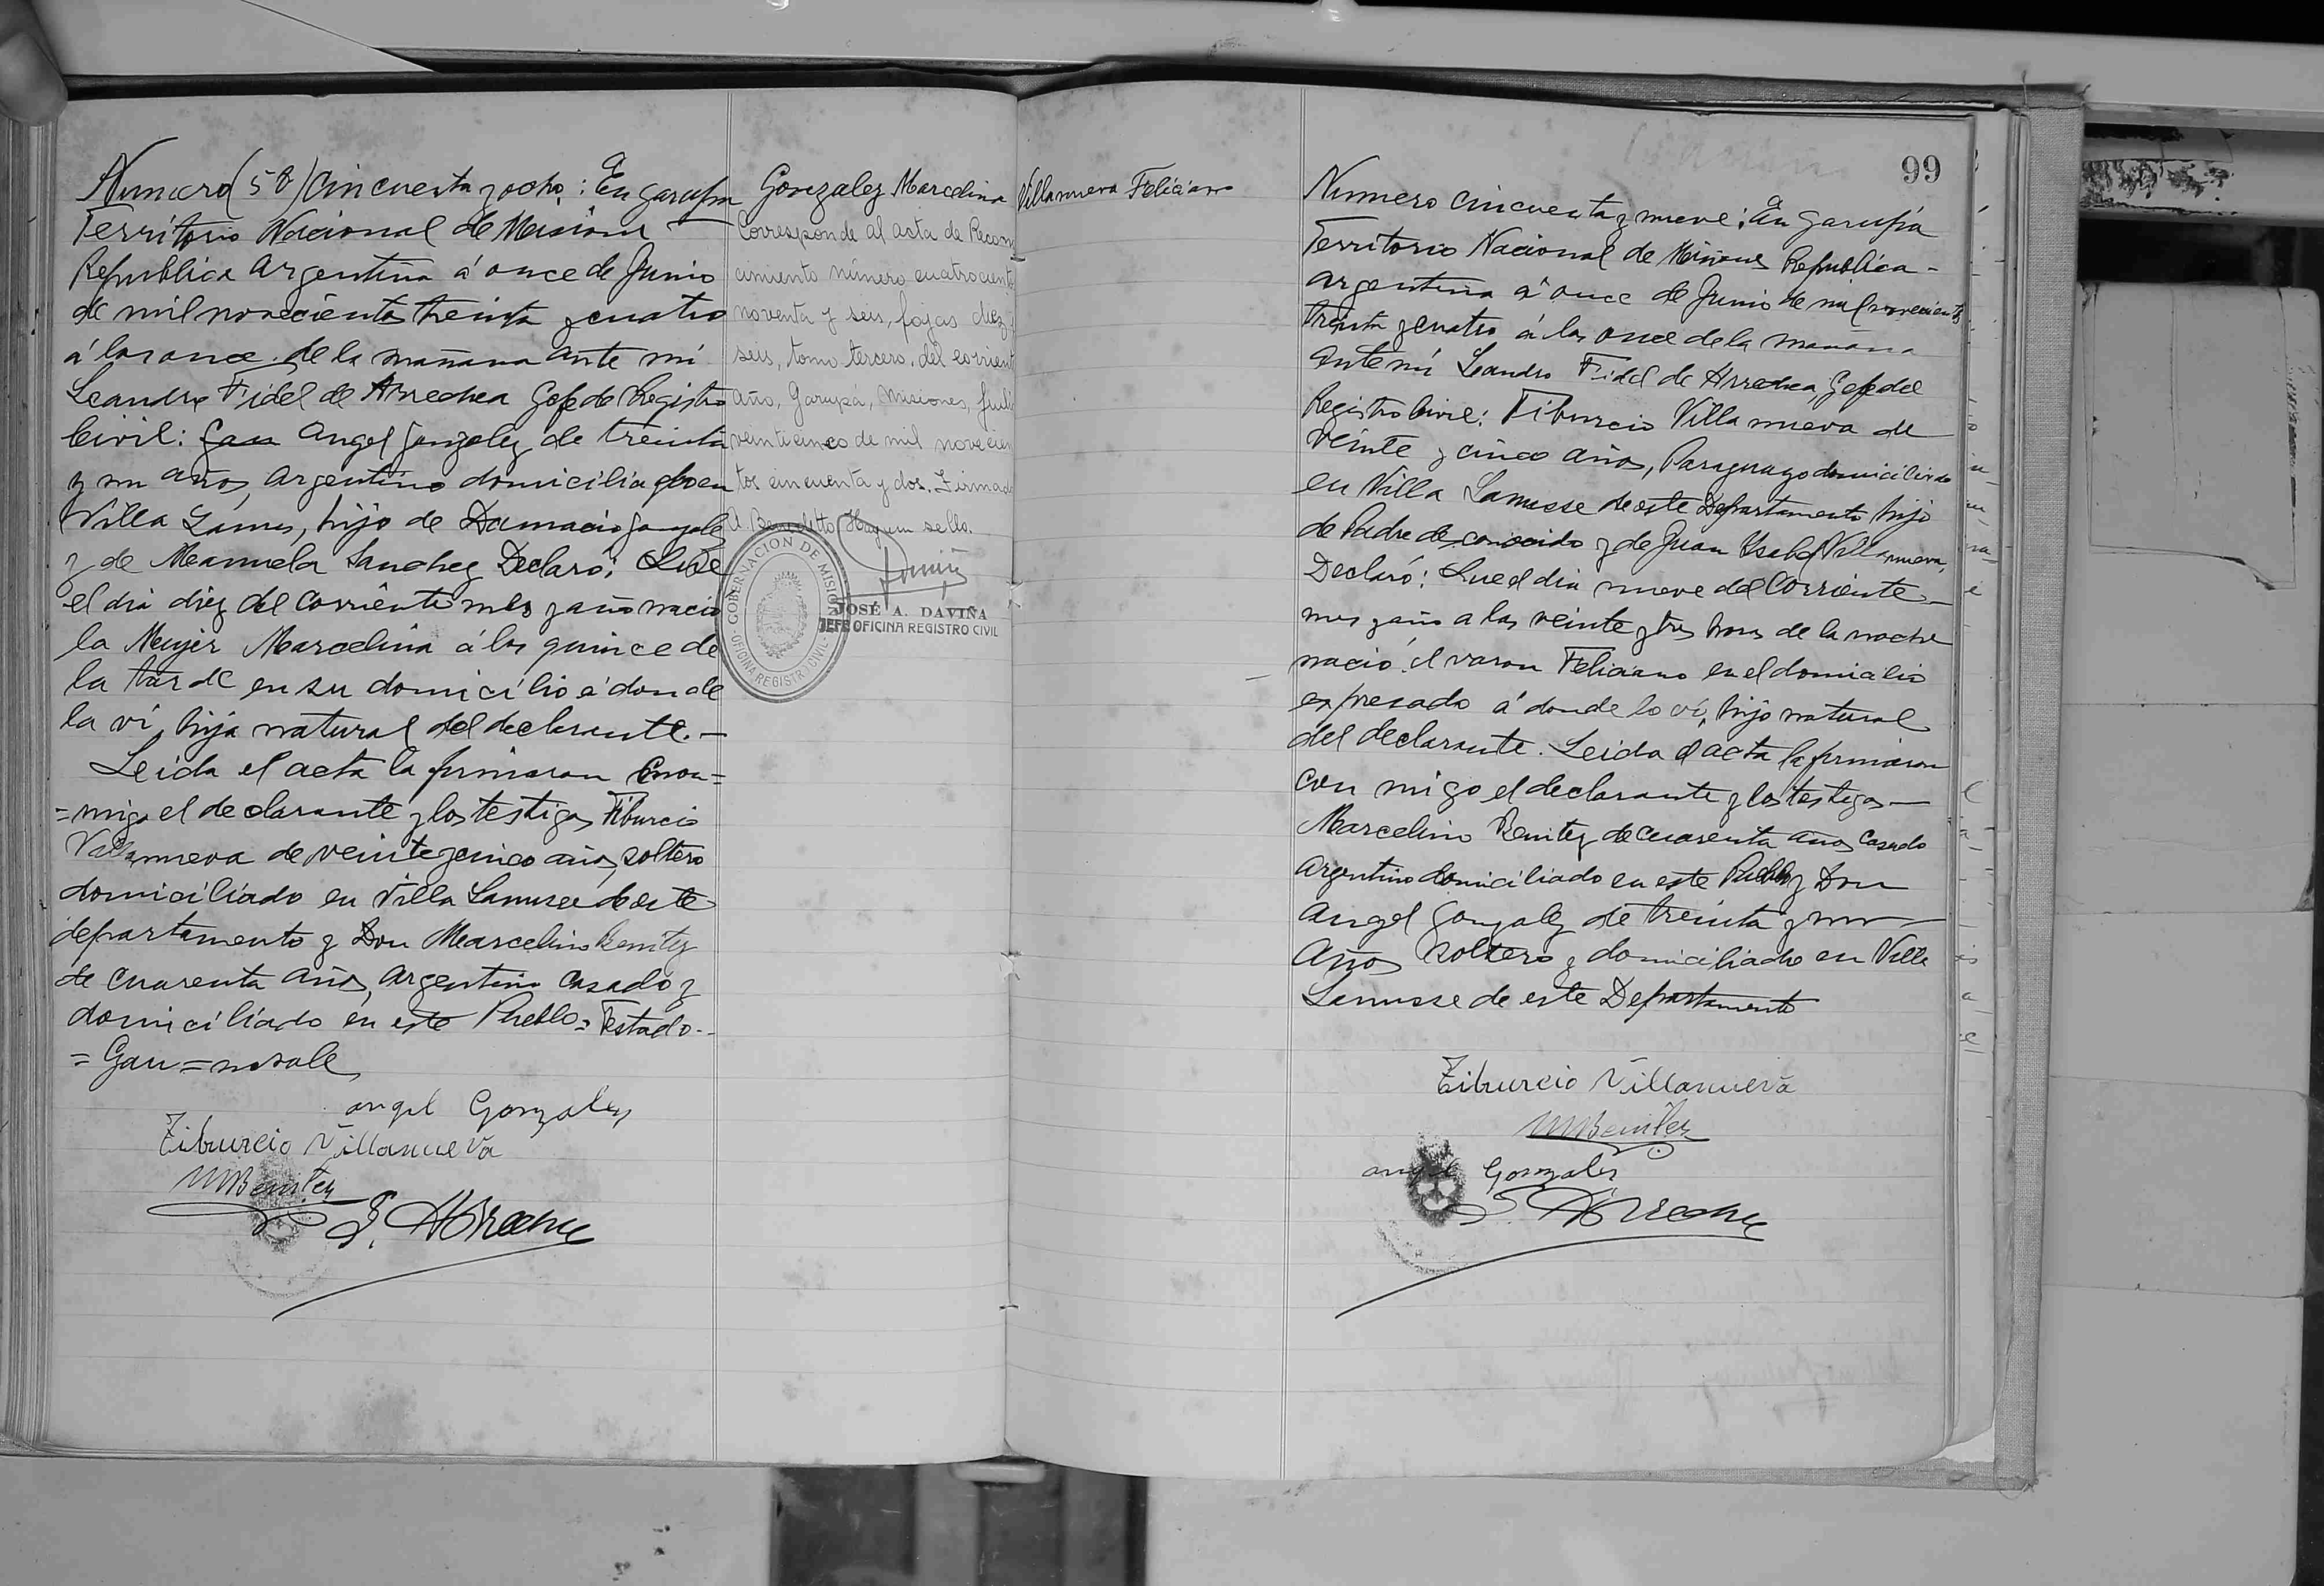 Numero (58) cincuenta y ocho: En Garupa
Territorio Nacional de Misiones
Republica Argentina á once de Junio
de mil novecientos treinta y cuatro
á las once de la mañana ante mí
Leandro Fidel de Arrechea Gefe de Registro
Civil: Gau Angel Gonzalez de treinta
y un años, Argentino domiciliado en
Villa Lanus, hijo de Damacio Gonzalez
y de Manuela Sanchez Declaró: Que
el dia diez del corriente mes y año nació
la Mujer Marcelina á las quince de
la tarde en su domicilio á donde
la ví, hija natural del declarante.—
Leida el acta la firmaron con=
=migo el declarante y los testigos Tiburcio
Villanueva de veinte y cinco años, soltero
domiciliado en Villa Lanusse de este
departamento y Don Marcelino Benitez
de cuarenta años, Argentino casado y
domiciliado en este Pueblo= Testado-
=Gau=no vale
angel Gonzales
Tiburcio Villanueva
M Benitez
L. Arrechea
Gonzalez Marcelina
Corresponde al acta de Recono
cimiento número cuatrocient
noventa y seis, fojas diez y
seis, tomo tercero, del corrient
año, Garupá, Misiones, Juli
veinticinco de mil novecien
tos cincuenta y dos. Firmad
Hay un sello.
GOBERNACION DE MISIONES
OFICINA REGISTRO CIVIL
JOSÉ A. DAVIÑA
JEFE OFICINA REGISTRO CIVIL
Villanueva Feliciano
99
Numero cincuenta y nueve: En Garupá
Territorio Nacional de Misiones Republica-
Argentina á once de Junio de mil novecientos
treinta y cuatro á las once de la mañana
ante mí Leandro Fidel de Arrechea, Gefe del
Registro Civil: Tiburcio Villanueva de
veinte y cinco años, Paraguayo domiciliado
en Villa Lanusse de este Departamento hijo
de Padre desconocido y de Juan Ysabel Villanueva,
Declaró: Que el dia nueve del corriente—
mes y año a las veinte y tres horas de la noche
nació el varon Feliciano en el domicilio
expresado á donde lo ví, hijo natural
del declarante. Leida el acta la firmaron
con migo el declarante y los testigos—
Marcelino Benitez de cuarenta años casado
Argentino domiciliado en este Pueblo y Don
Angel Gonzalez de treinta y un—
años soltero y domiciliado en Villa
Lanusse de este Departamento
Tiburcio Villanueva
M Benitez
angel Gonzales
L. Arrechea